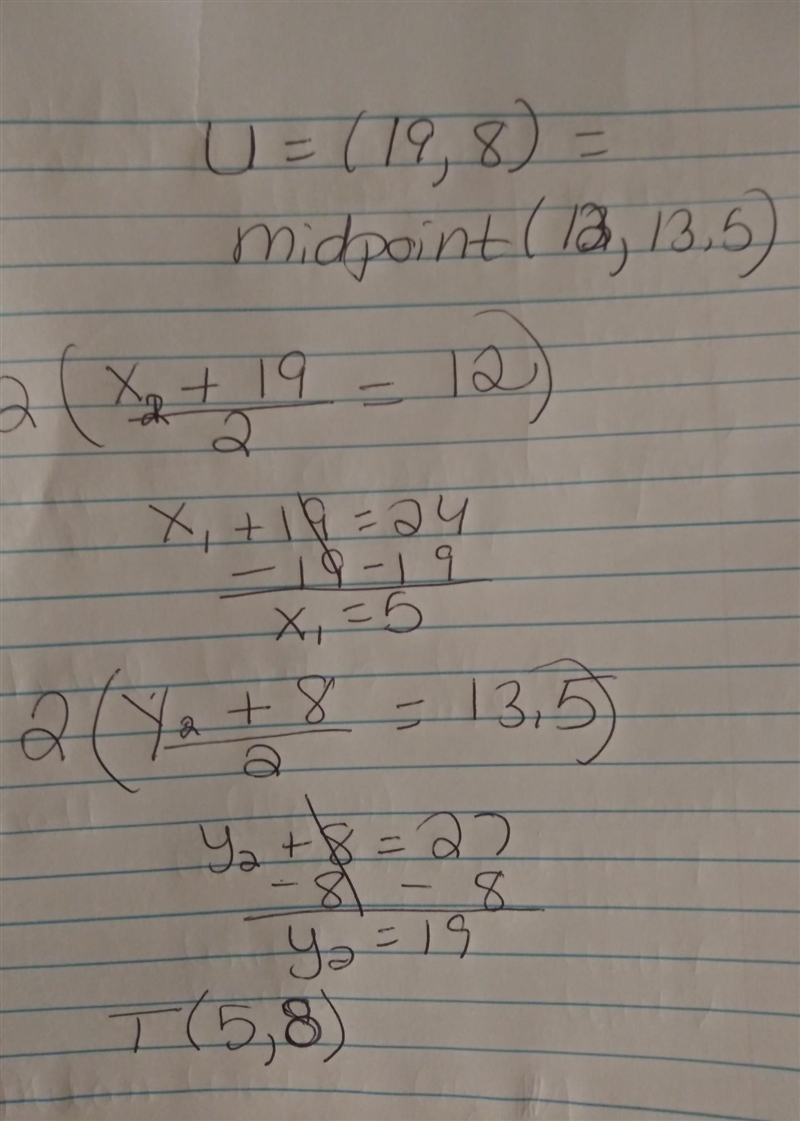 U = (19, 8) =
midpoint (12, 13.5)
2 ( x₂ + 19 / 2 = 12 )
x₁ + 19 = 24
- 19 - 19
x₁ = 5
2 ( y₂ + 8 / 2 = 13.5 )
y₂ + 8 = 27
- 8 - 8
y₂ = 19
T (5, 8)